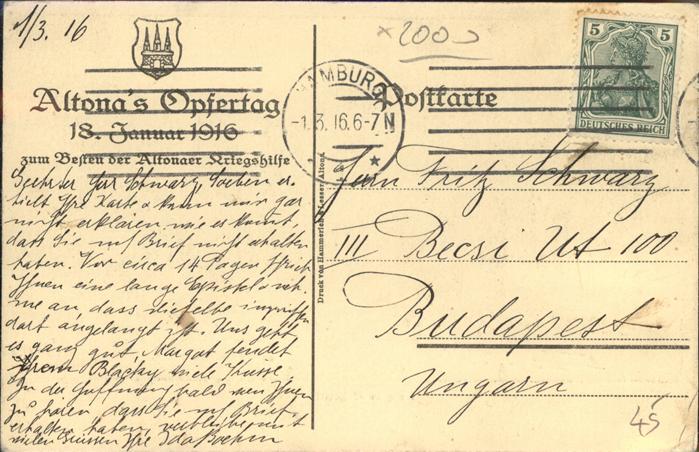 1/3. 16
Altona's Opfertag
18. Januar 1916
zum Besten der Altonaer Kriegshilfe
Geehrter Herr Schwarz, Soeben er-
hielt Ihre Karte & kann mir gar
nicht erklären wie es kommt,
dass Sie m/ Brief nicht erhalten
haben. Vor circa 14 Tagen schrieb
Ihnen eine lange Epistel &
an dass dieselbe inzwischen
dort angelangt ist. Uns geht
es ganz gut, Margot sendet
Ihrem viele Küsse
In der Hoffnung bald von Ihnen
zu hören, dass Sie m/ Brief
erhalten haben, verbleibe mit
vielen Grüssen Ihre Ida Boehm
Druck von Hammerich & Lesser, Altona.
2000
HAMBURG
-1.3.16.6-7N
Postkarte
5 5
DEUTSCHES REICH
Herrn Fritz Schwarz
III Becsi Ut 100
Budapest
Ungarn
45